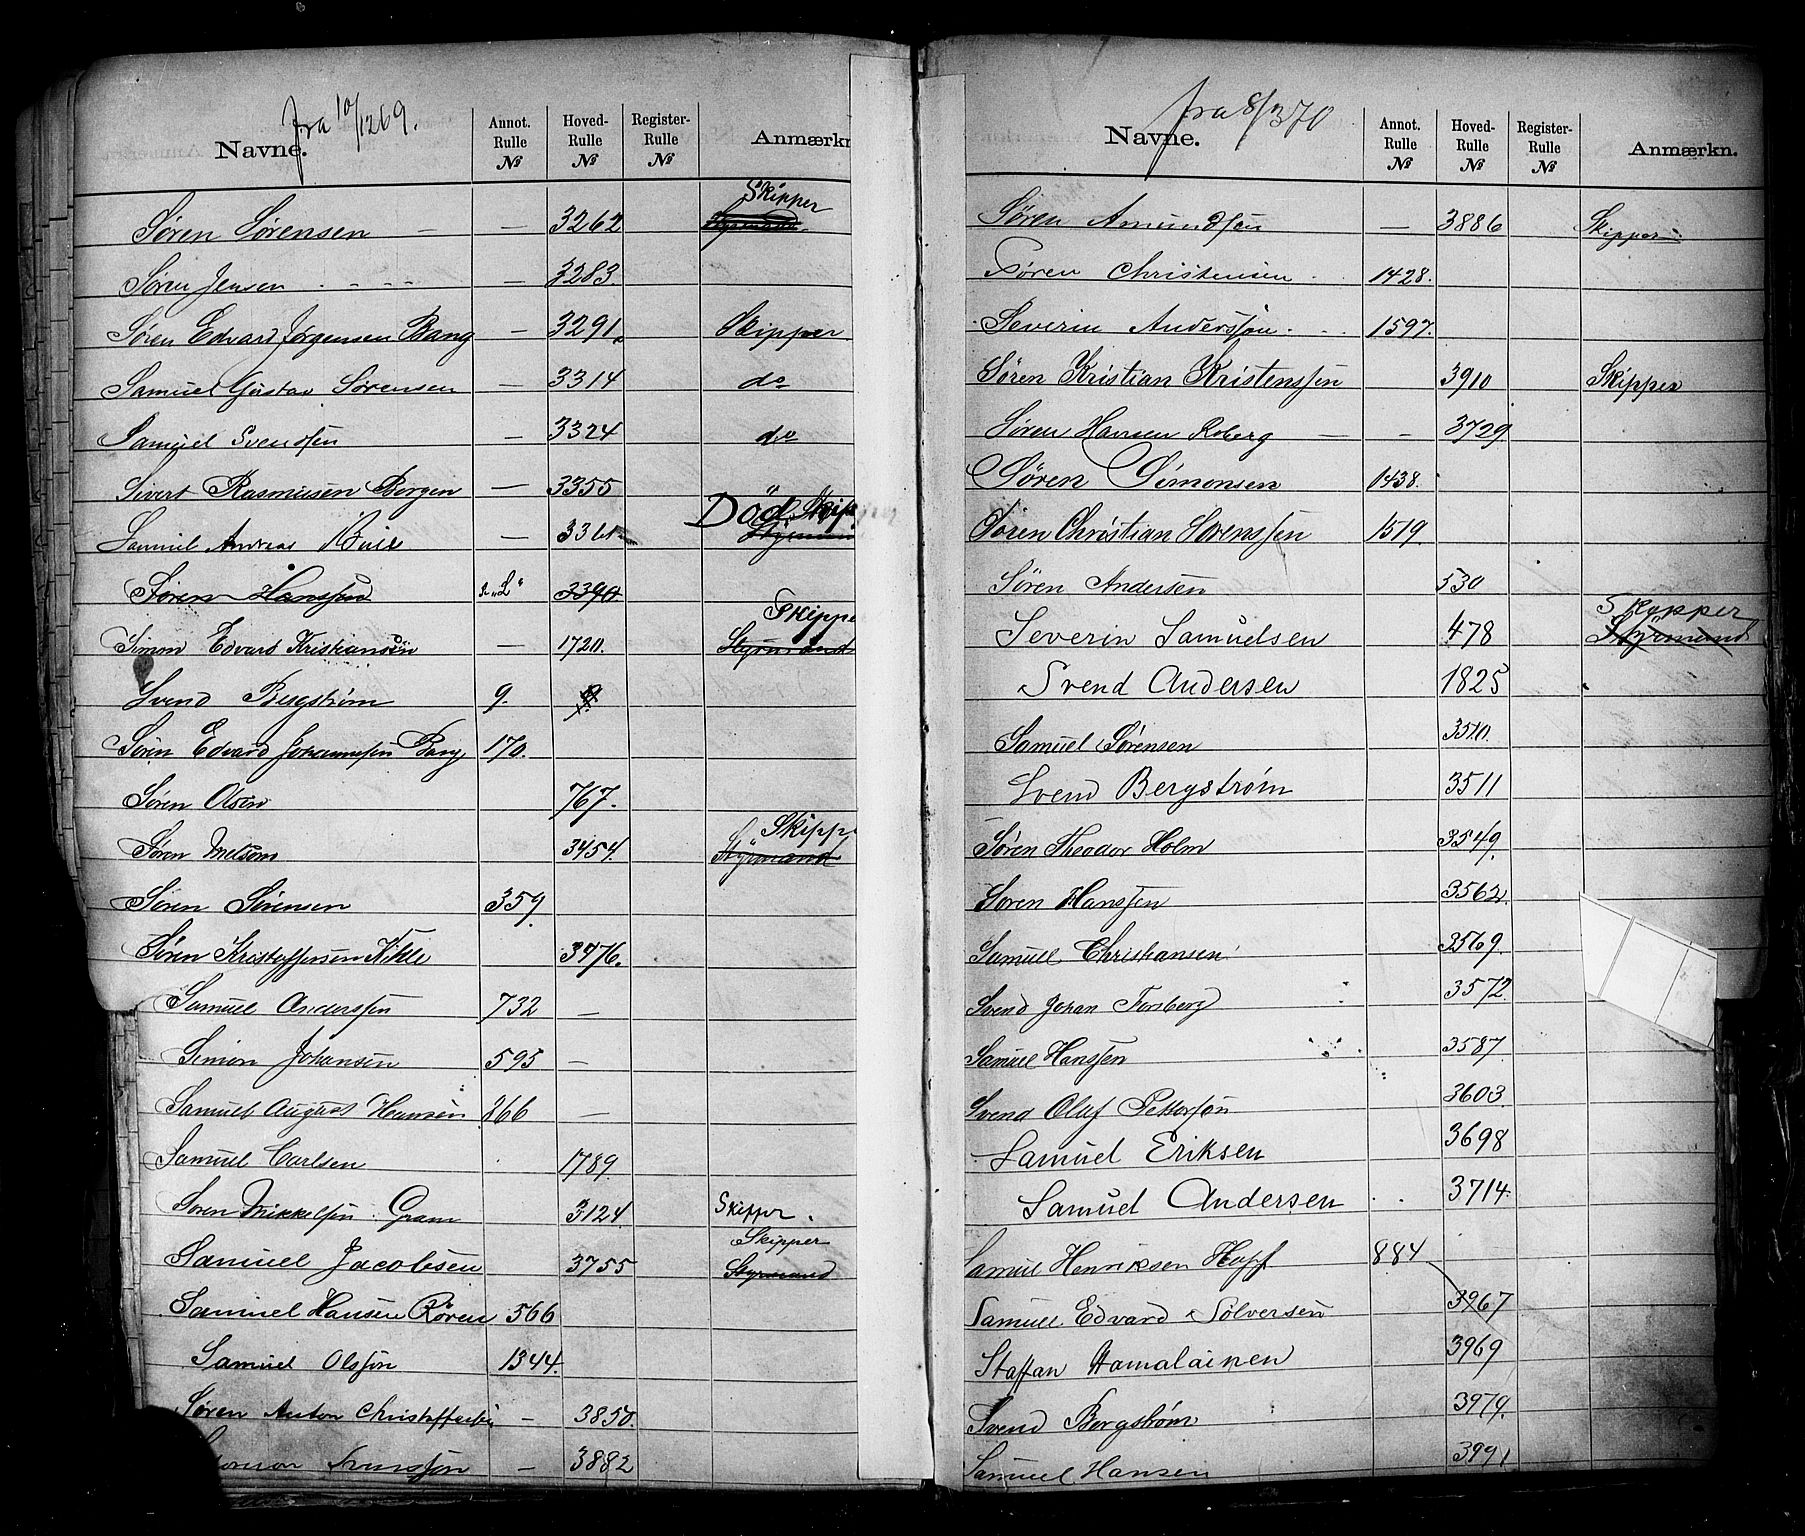 fra 10/12 69.
Navne. Annot. Rulle № Hoved- Rulle № Register- Rulle № Anmærkn
Søren Sørensen — — 3262 Skipper
Søren Jensen — 3283.
Søren Edvard Jørgensen Bang — 3291. Skipper
Samuel Gustav Sørensen — 3314 do
Samuel Svendsen — 3324 do
Sivert Rasmussen Borgen — 3355
Samuel Andreas — Död. Skipper Styrmand
Søren Hanssen "L" 3390.
Simon Edvard Kristiansen — 1720. Skippe Styrmand
Svend Bergstrøm 9.
Søren Edvard Johannesen Bang 170.
Søren Olsen 767.
Søren Melsom 3454. Skipp Styrmand
Søren Sørensen 359.
Søren Kristoffersen 3476.
Samuel Anderssen 732 —
Simon Johansen 595 —
Samuel August Hansen 266 —
Samuel Carlsen 1789.
Søren Mikkelsen Gram 3124 Skipper.
Samuel Jacobsen 3755 Skipper Styrmand
Samuel Hansen Røren 566
Samuel Olsson 1344.
Søren Anton — 3850.
— 3882
fra 8/3 70
Navne. Annot. Rulle № Hoved- Rulle № Register- Rulle № Anmærkn.
Søren Amundsen — 3886 Skipper
Søren Christensen 1428.
Severin Andersson 1597.
Søren Kristian Kristenssen 3910 Skipper
Søren Hansen Roberg — - 3729
Søren Simonsen 1438.
Søren Christian Sørenssen 1519.
Søren Andersen 530
Severin Samuelsen 478 Skipper Styrmand
Svend Andersen 1825
Samuel Sørensen 3510.
Svend Bergstrøm 3511
Søren Theodor Holm 3549.
Søren Hanssen 3562.
Samuel Christiansen 3569.
Svend Johan Forsberg 3572
Samuel Hanssen 3587.
Svend Olaf Petterson 3603.
Samuel Eriksen 3698
Samuel Andersen 3714.
Samuel Henriksen Hopf 884
Samuel Edvard Sølversen 3967
Staffan Hamalainen 3969
Svend Bergstrøm 3979.
Samuel Hansen 3991